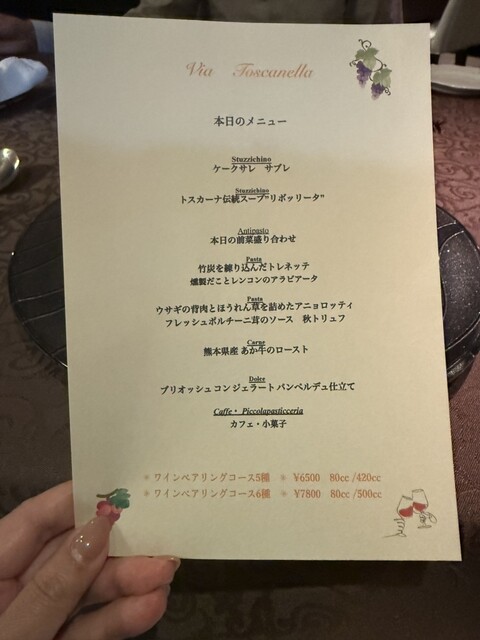 Via Toscanella
本日のメニュー
Stuzzichino
ケークサレ サブレ
Stuzzichino
トスカーナ伝統スープ"リボッリータ"
Antipasto
本日の前菜盛り合わせ
Pasta
竹炭を練り込んだトレネッテ
燻製だことレンコンのアラビアータ
Pasta
ウサギの背肉とほうれん草を詰めたアニョロッティ
フレッシュポルチーニ茸のソース 秋トリュフ
Carne
熊本県産 あか牛のロースト
Dolce
ブリオッシュ コン ジェラート パンペルデュ仕立て
Caffe・ Piccolapasticceria
カフェ・小菓子
＊ワインペアリングコース5種 ＊ ¥6500 80cc /420cc
＊ワインペアリングコース6種 ＊ ¥7800 80cc /500cc